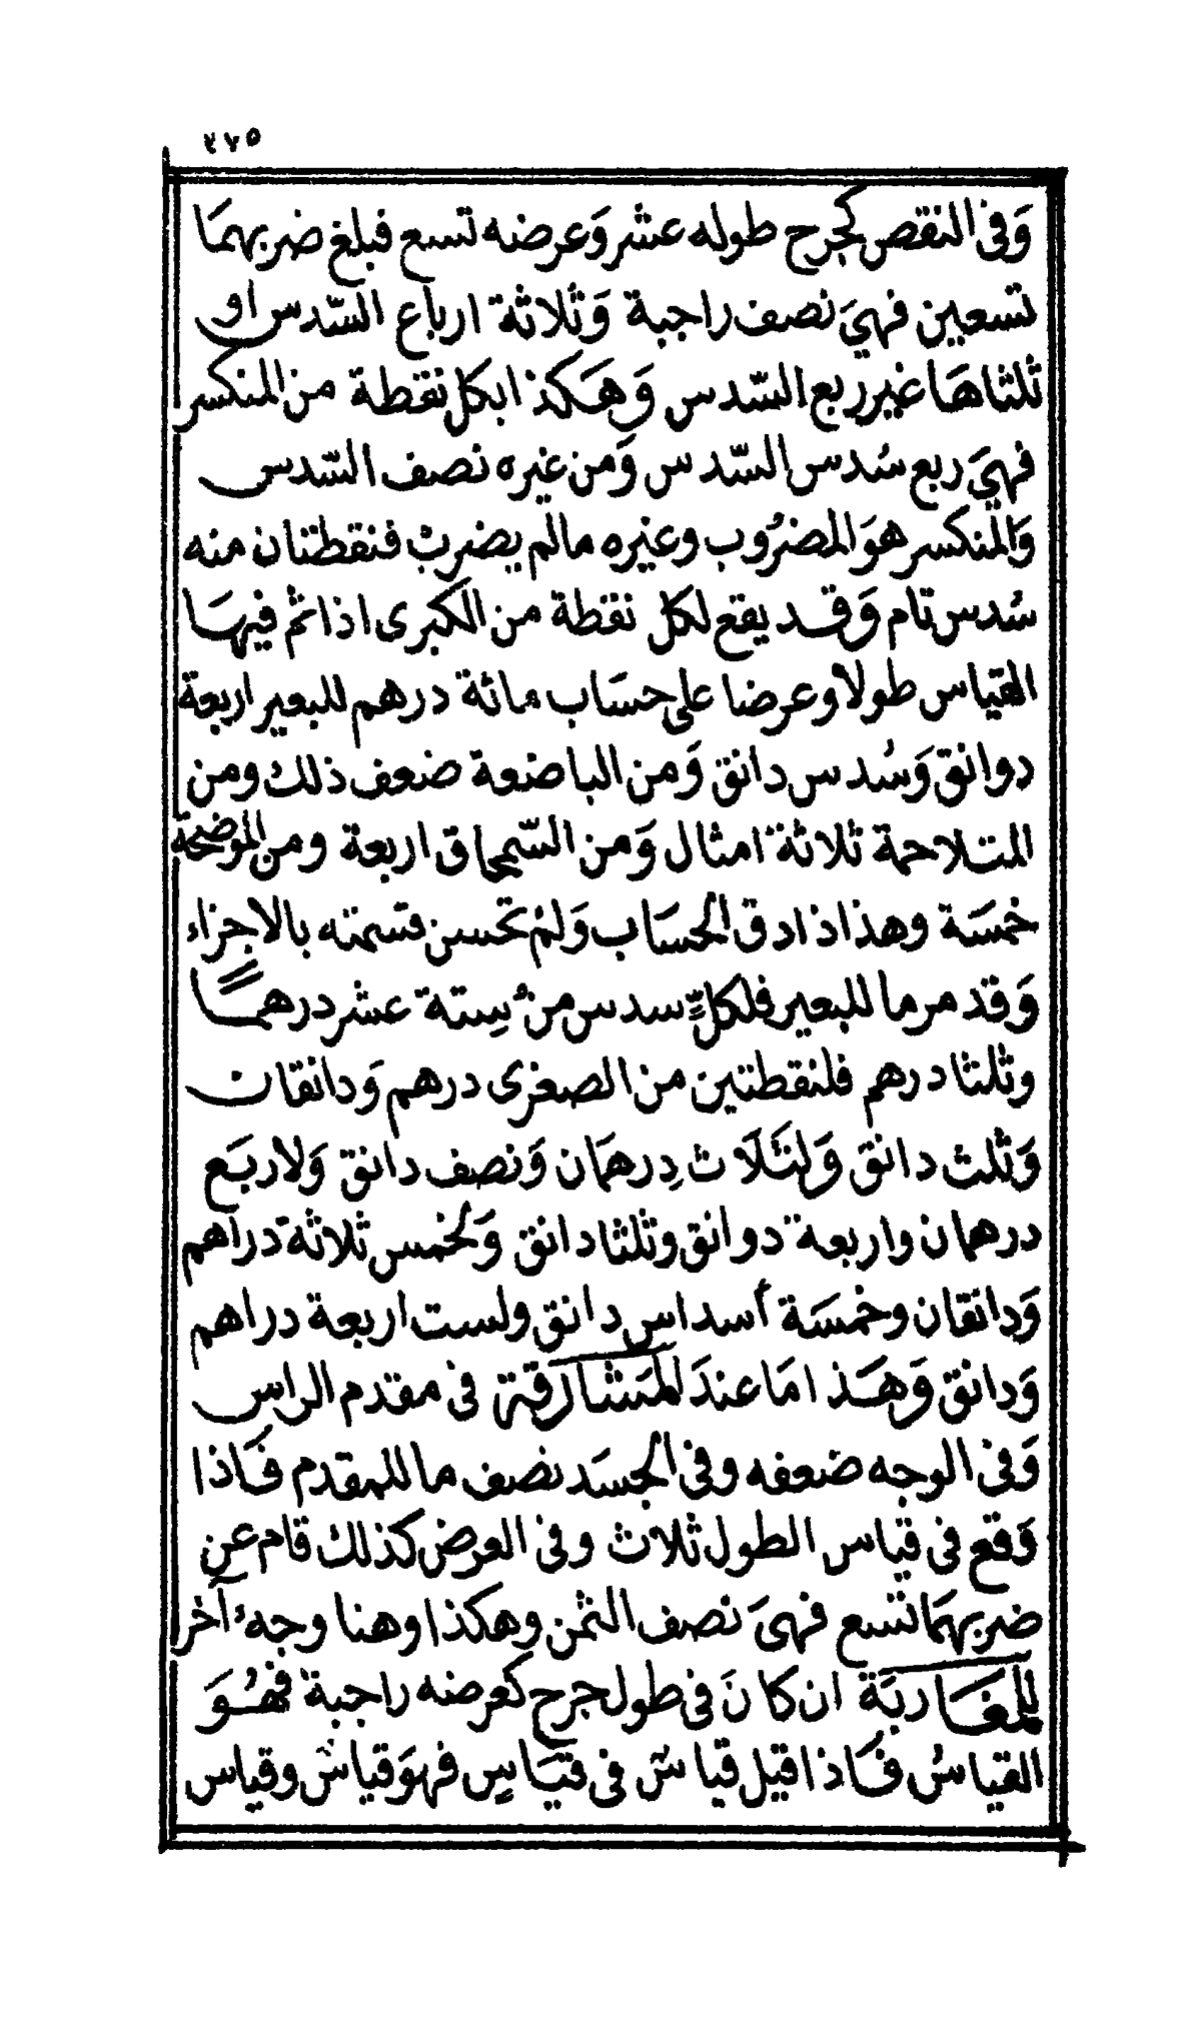 ٤٧٥
وَفى النقص كجرح طوله عشر وَعرضه تسع فبلغ ضربهمَا
تسعين فهيَ نصف راجبة وَثلاثة ارباع السّدس او
ثلثاهَا غير ربع السّدس وَهَكذا بكل نقطة من المنكسر
فهيَ ربع سُدس السّدس وَمن غيره نصف السّدس
وَالمنكسر هوَ المضرُوب وغيره مالم يضربْ فنقطتان منه
سُدس تام وَقد يقع لكل نقطة من الكبرى اذا تمْ فيهَا
القياس طولا وعرضا على حسَاب مائة درهم للبعير اربعة
دوانق وَسُدس دانق وَمن الباضعة ضعف ذلك ومن
المتلاحمة ثلاثة امثال وَمن السّمحاق اربعة ومن الموضحة
خمسَة وهذا ادق الحسَاب وَلمْ تحسن قسمته بالاجزاء
وَقد مر ما للبعير فلكلِّ سدس منْ سِتة عشر درهمًا
وثلثا درهم فلنقطتين من الصغرى درهم وَدانقان
وَثلث دانق وَلثَلَاث دِرهمَان وَنصف دانق وَلاربَع
درهمان واربعة دوانق وثلثا دانق وَلخمس ثلاثة دراهم
وَدانقان وخمسَة أسداس دانق ولست اربعة دراهم
وَدانق وَهَذا مَا عندَ المَشَارقة فى مقدم الراس
وَفى الوجه ضعفه وفى الجسَد نصف ما للمقدم فَاذا
وَقع فى قياس الطول ثلاث وفى العرض كذلك قام عن
ضربهمَا تسع فهىَ نصف الثمن وهكذا وهنا وجهٌ آخر
للمغَاربَة ان كانَ فى طول جرح كعرضه راجبة فهُوَ
القياسُ فَاذا قيل قياسٌ فى قيَاسٍ فهوَ قياسٌ وقياس